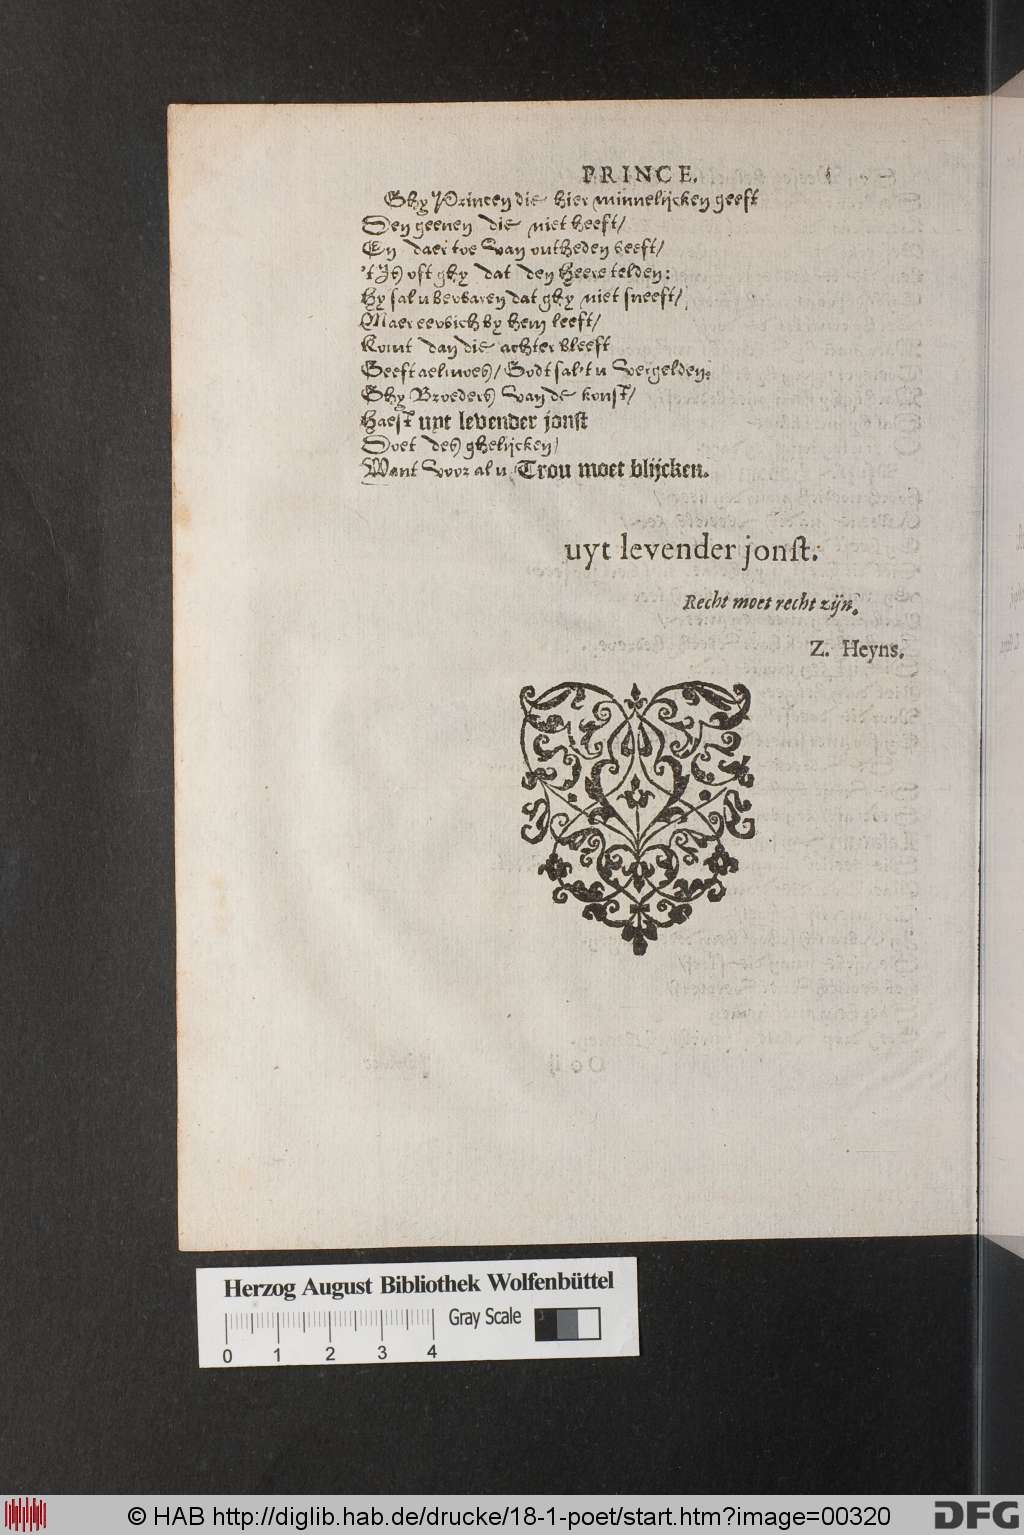 PRINCE.
Ghy Princen die hier minnelijcken geeft
Den geenen die niet heeft/
En daer toe van outheden beeft/
't Is oft ghy dat den Heere telden:
Hy sal u bewaren dat ghy niet sneeft/
Maer eewich by hem leeft/
Komt dan die achter bleeft
Geeft aelmoes/ Godt sal't u vergelden:
Ghy Broeders van de konst/
Haest uyt levender jonst
Doet des ghelijcken/
Want voor al u Trou moet blijcken.
uyt levender jonst.
Recht moet recht zijn.
Z. Heyns.
Herzog August Bibliothek Wolfenbüttel
Gray Scale
0 1 2 3 4
© HAB http://diglib.hab.de/drucke/18-1-poet/start.htm?image=00320
DFG